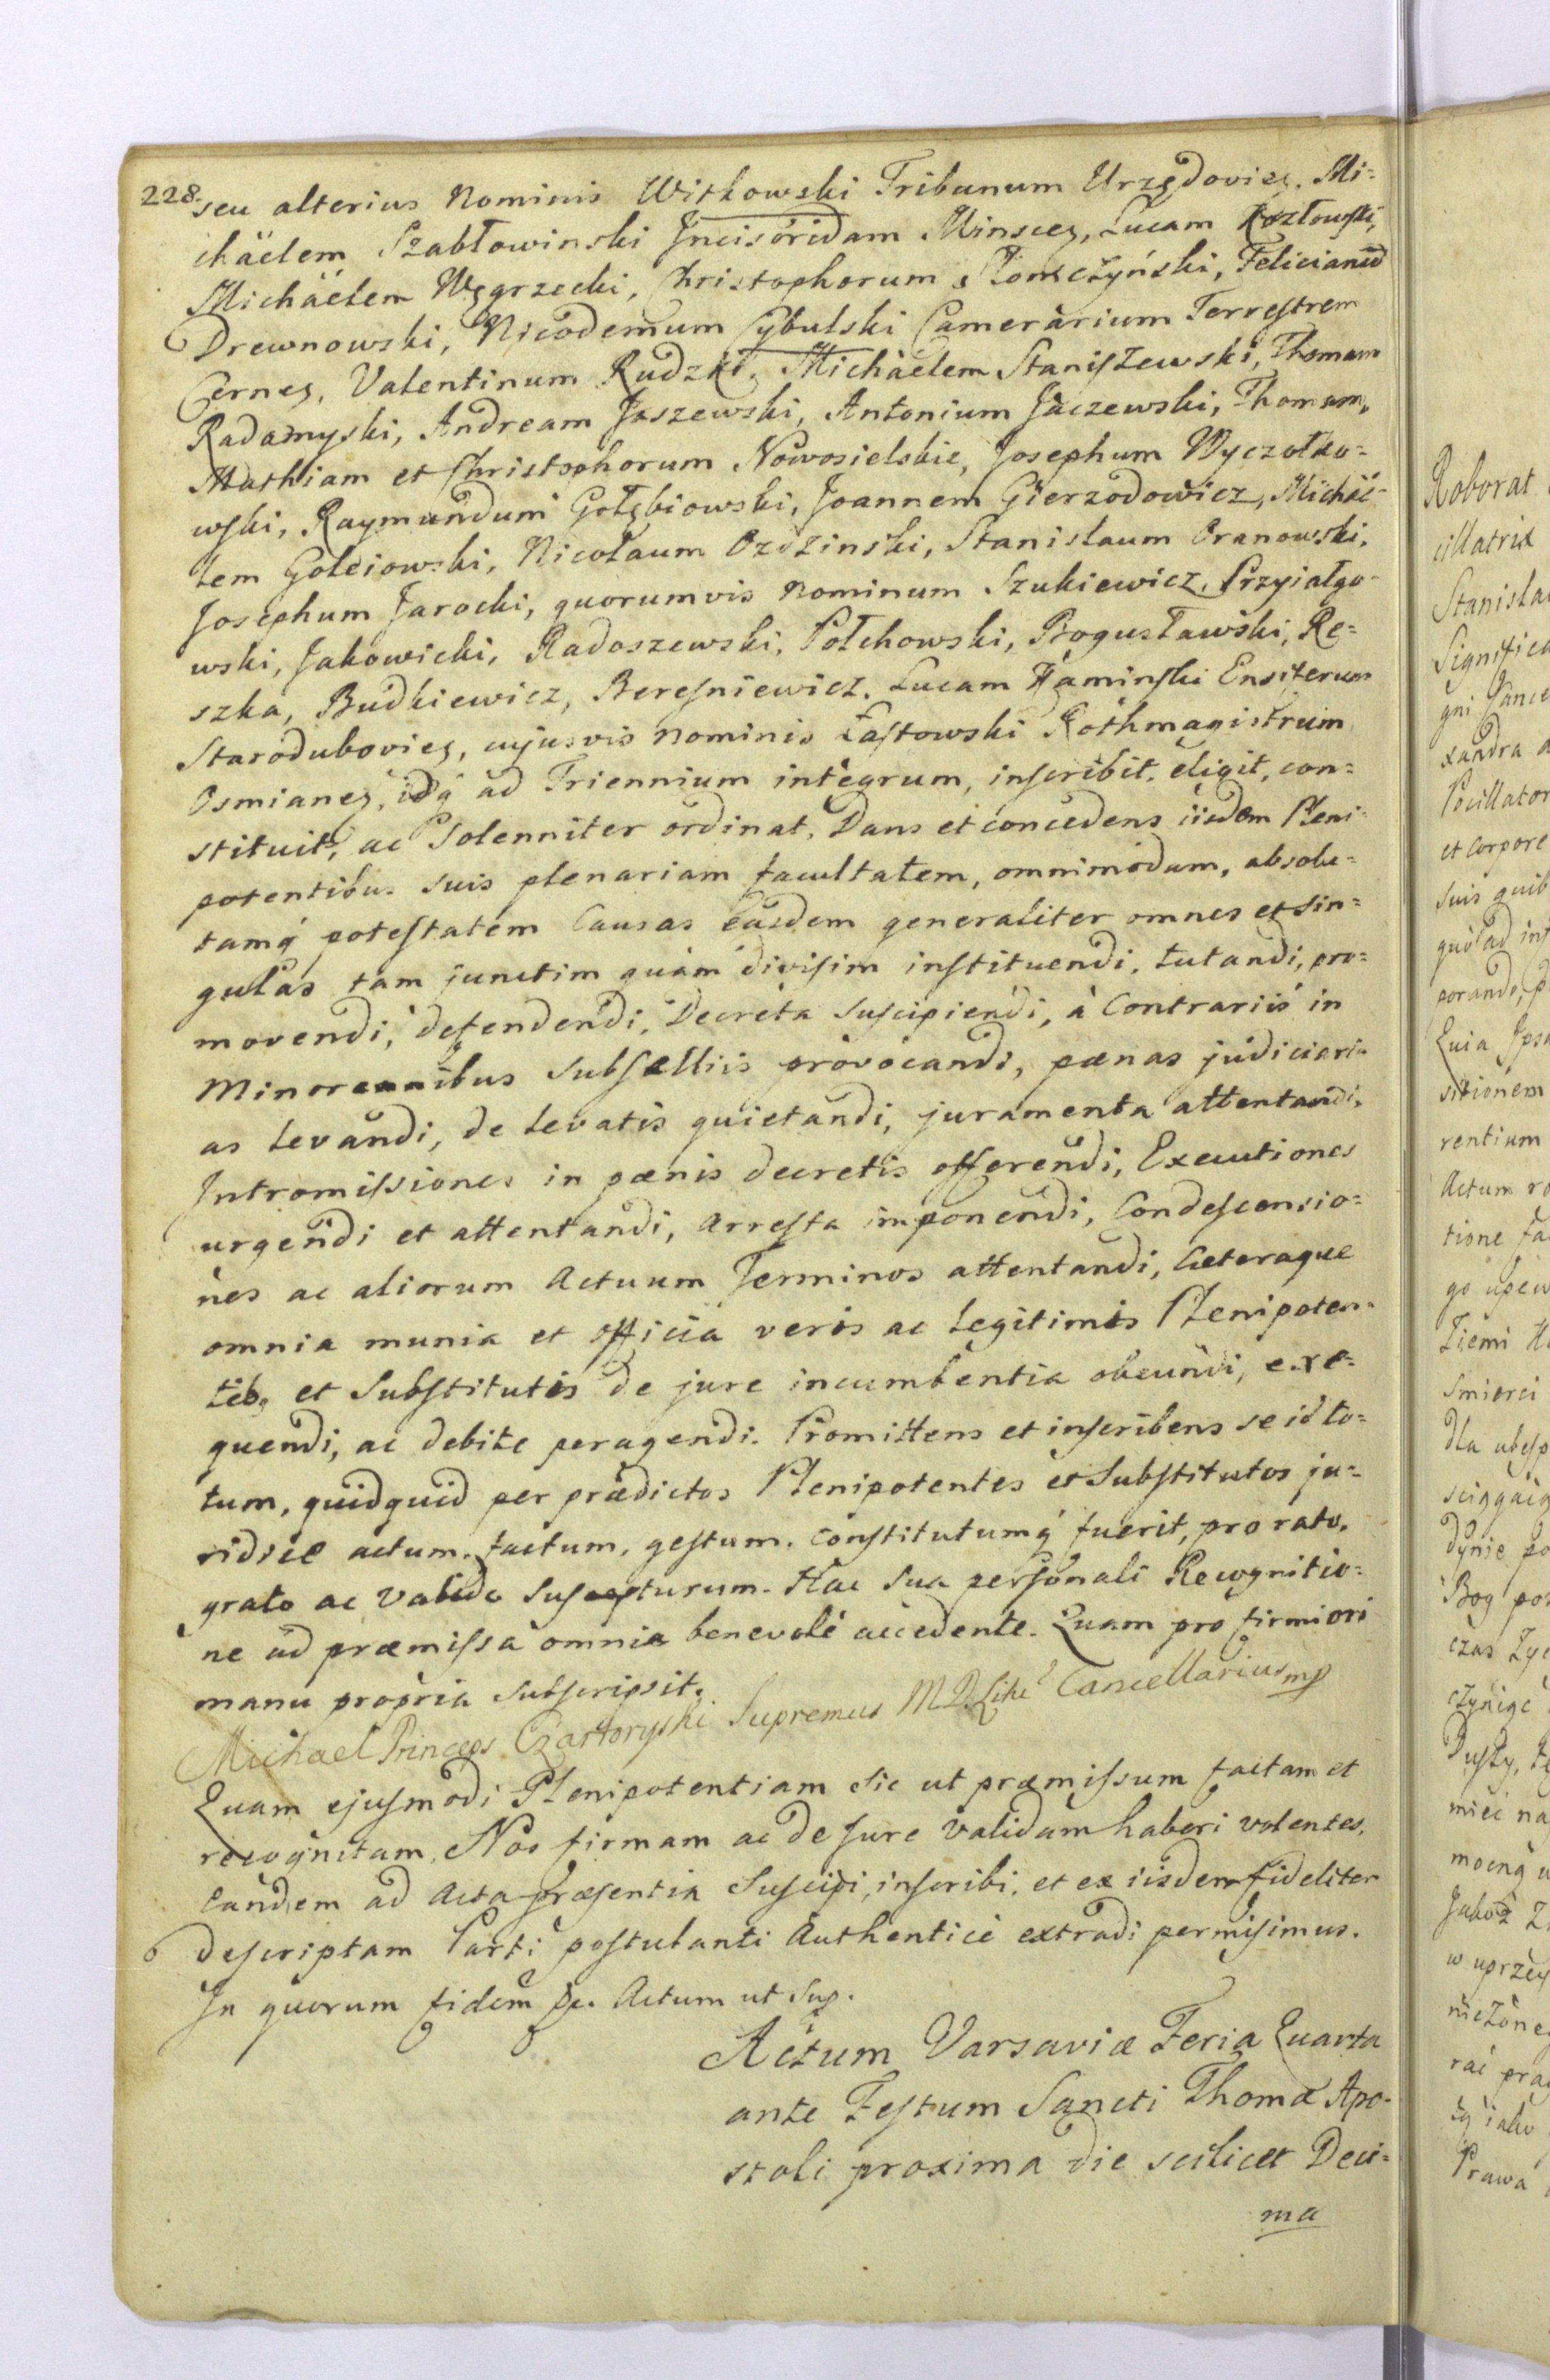 228.
seu alterius Nominis Witkowski Tribunum Urzędovieɳ. Mi=
chäelem Szabłowinski Jncisoridam Minsceɳ, Lucam Kozłowski,
Michäelem Węgrzecki, Christophorum Słomczyński, Felicianũ
Drewnowski, Nicodemum Cybulski Camerarium Terrestrem
Cerneɳ, Valentinum Rudzki. Michäelem Staniszewski, Thomam
Radomyski, Andream Jaszewski, Antonium Jaczewski, Thomam,
Mathiam et Christophorum Nowosielskie, Josephum Wyczołko=
wski, Raymundum Gołębiowski, Joannem Gierzodowicz, Michäe=
lem Goleiowski, Nicolaum Ozdzinski, Stanislaum Oranowski,
Josephum Jarocki, quorumvis Nominum Szukiewicz. Przyiałgo=
wski, Jakowicki, Radoszewski, Połchowski, Bogusławski, Re=
szka, Budkiewicz, Beresniewicz. Lucam Kaminski Ensiferum
Starodubovieɳ, cujusvis Nominis Łastowski Rothmagistrum
Osmianeɳ, idq́ ad Triennium integrum, inscribit. eligit, con=
stituit, ac Solenniter ordinat. Dans et concedens iisdem Pleni=
potentibus suis plenariam facultatem, omnimodam, absolu=
tamq́ potestatem Causas easdem generaliter omnes et sin=
gulas tam junctim quàm divisim instituendi, tutandi, pro=
movendi, defendendi, Decreta Suscipiendi, à Contrariis in
Minoribus Subselliis provocandi, pænas judiciari=
as levandi, de levatis quietandi, juramenta attentandi,
Jntromissiones in pænis decretis offerendi, Executiones
urgendi et attentandi, Arresta imponendi, Condescensio=
nes ac aliorum Actuum Terminos attentandi, Cæteraque
omnia munia et officia veris ac legitimis Plenipoten=
tib9 et Substitutis de jure incumbentia obeundi, exe=
quendi, ac debite peragendi. Promittens et inscribens se id to=
tum, quidquid per prædictos Plenipotentes et Substitutos ju=
ridice actum, factum, gestum, constitutumq́ fuerit, pro rato,
grato ac valido Suscepturum. Hac Sua personali Recognitio=
ne ad præmissa omnia benevolè accedente. Quam pro firmiori
manu propria Subscripsit.
Michael Princeps Czartoryski Supremus M D. Litt Cancellarius mp
Quam ejusmodi Plenipotentiam Sic ut præmissum factam et
recognitam, Nos firmam ac de Jure validam haberi volentes,
Eandem ad Acta præsentia Suscipi, inscribi, et ex iisdem fideliter
descriptam Parti postulanti Authenticè extradi permisimus.
Jn quorum fidem &c. Actum ut Sup.
Actum Varsaviæ Feria Quarta
ante Festum Sancti Thomæ Apo=
stoli proxima die scilicet Deci=
ma
Roborat
cillatrix
Stanisla
Significa
gni
xandra a
Pocillator
et corpore
suis quib
quò ad inf
porando, p
Quia Jpsa
sitionem
rentium
Actum ro
tione fa
go upew
Ziemi
Smierci
dla ubesp
sciągaią
dynie po
Bog poz
czas Zyc
czynigc
Duszy, te
mieć na
mocną w
Jakoż Z
w uprzey
nieżone
rać pra
ią iako
Prawa